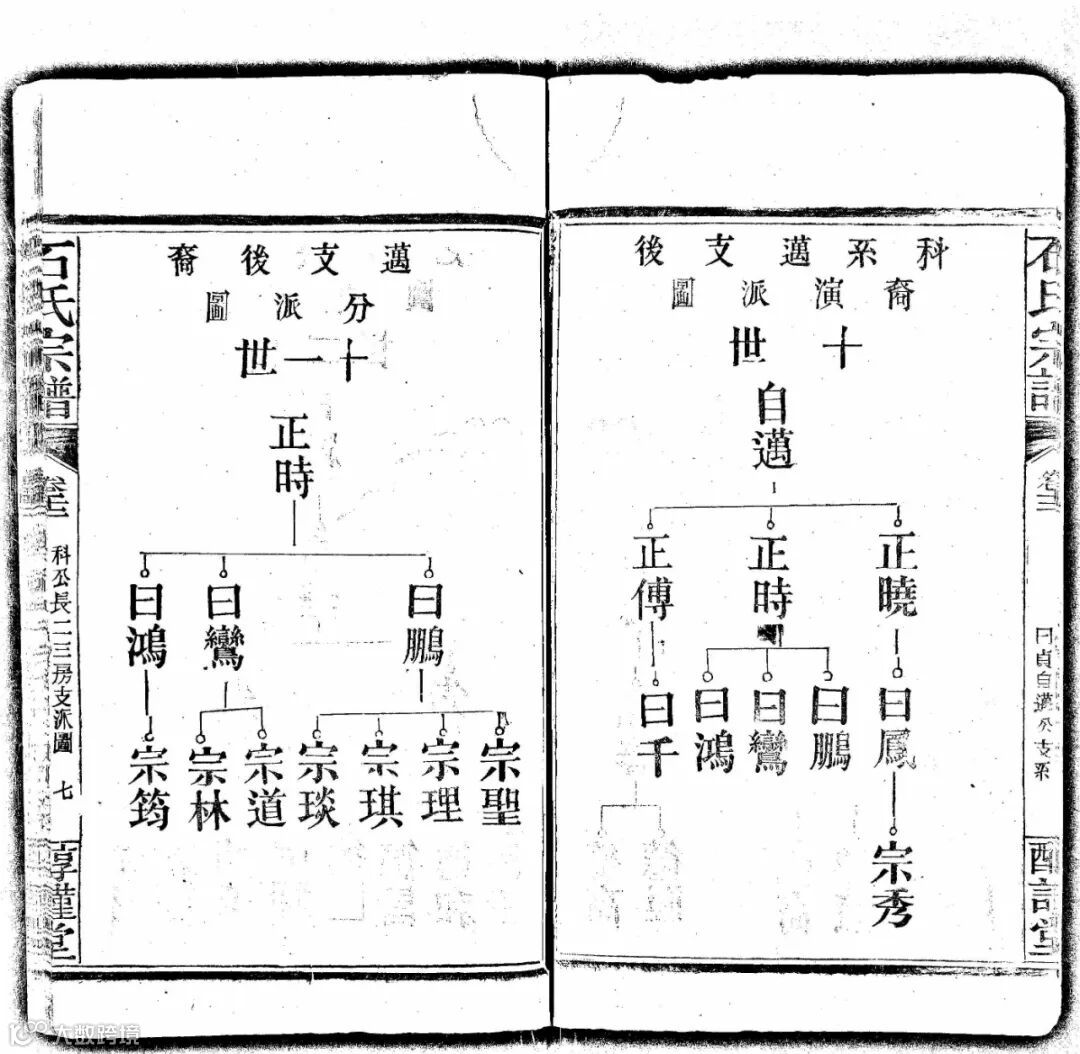 科系邁支後
裔演派圖
十世
自邁
正曉
正時
正傅
曰鳳
曰鵬
曰鸞
曰鴻
曰千
宗秀
石氏宗譜
卷三
曰貞自邁公支系
邁支後裔
分派圖
十一世
正時
曰鵬
曰鸞
曰鴻
宗聖
宗理
宗琪
宗琰
宗道
宗林
宗筠
石氏宗譜
卷三
科公長二三房支派圖
七
惇謹堂
大数跨境